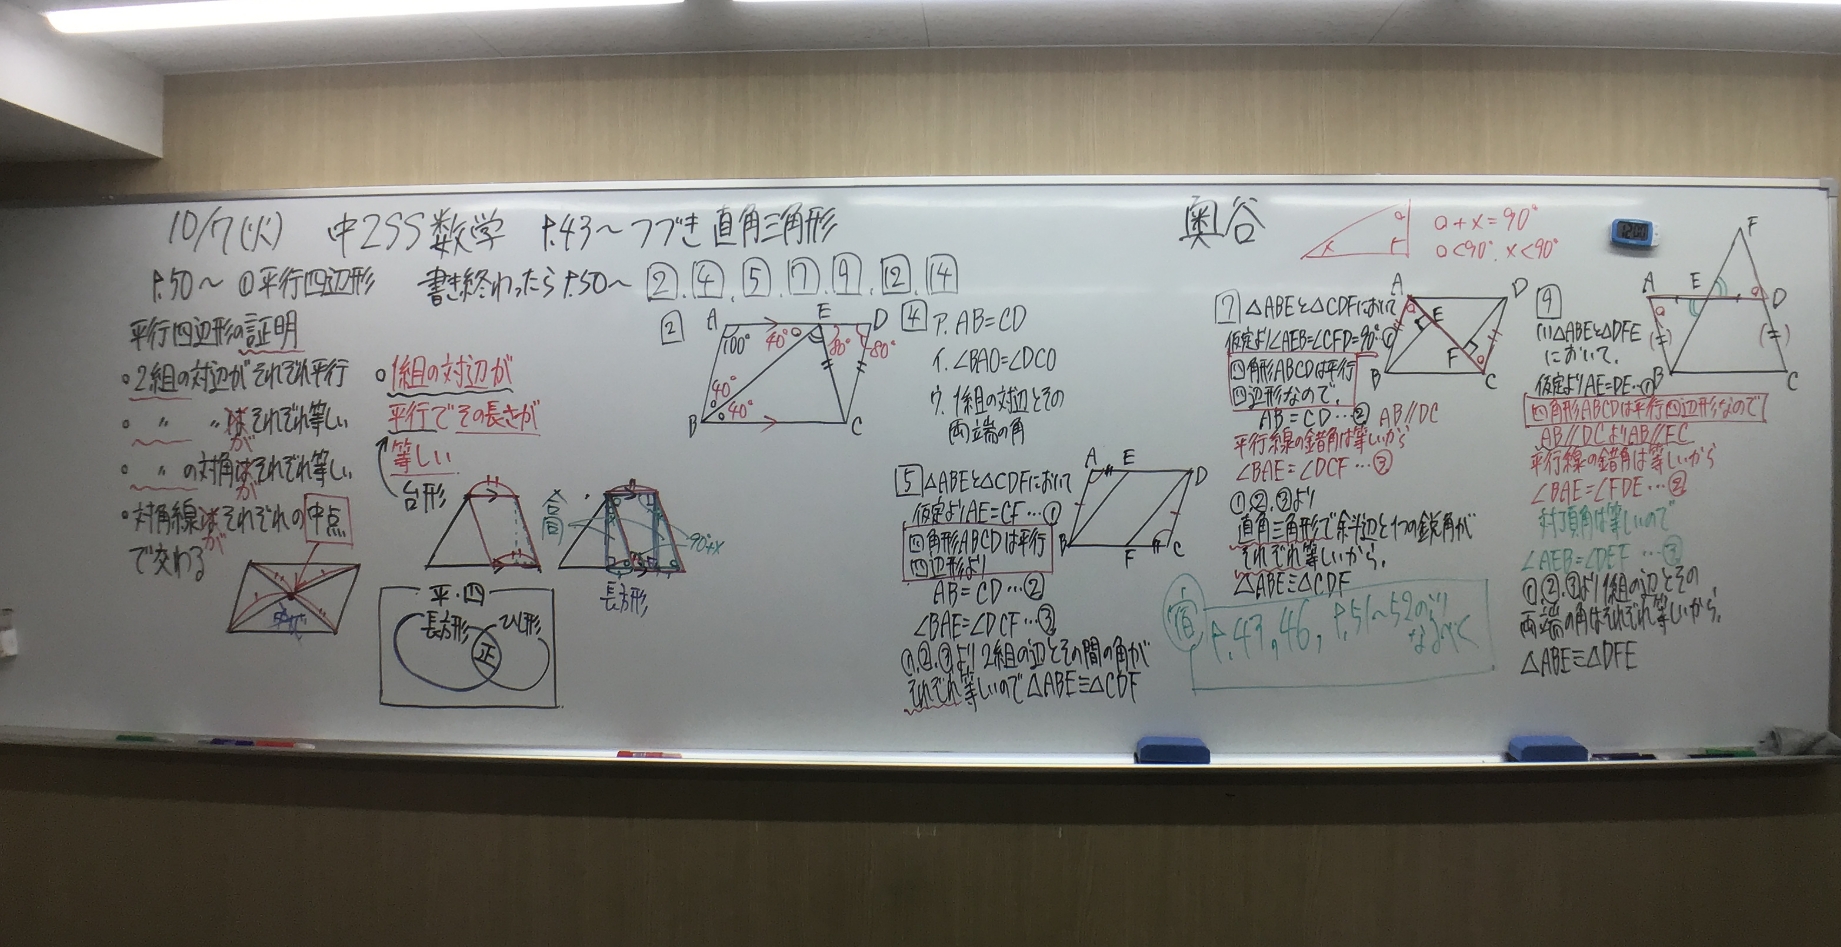 10/7(火) 中2SS数学 P.43～つづき 直角三角形
奥谷
P.50～ ①平行四辺形 書き終わったらP.50～ 2. 4. 5. 7. 9. 12. 14
平行四辺形の証明
・2組の対辺がそれぞれ平行
・〃 〃はそれぞれ等しい
が
・〃の対角はそれぞれ等しい
が
・対角線はそれぞれの中点
が
で交わる
・1組の対辺が
平行でその長さが
等しい
台形
合同
90°+x
長方形
平・四
長方形 ひし形
正
2
A E D
100° 40° 80° 80°
40°
40°
B C
4 ア. AB=CD
イ. ∠BAO=∠DCO
ウ. 1組の対辺とその
両端の角
5 △ABEと△CDFにおいて
仮定よりAE=CF…①
四角形ABCDは平行
四辺形より
AB=CD…②
∠BAE=∠DCF…③
①,②,③より2組の辺とその間の角が
それぞれ等しいので△ABE≡△CDF
A E D
B F C
a
x
a+x=90°
a<90°. x<90°
7 △ABEと△CDFにおいて
仮定より∠AEB=∠CFD=90°…①
四角形ABCDは平行
四辺形なので,
AB=CD…② AB//DC
平行線の錯角は等しいから
∠BAE=∠DCF…③
①,②,③より
直角三角形で斜辺と1つの鋭角が
それぞれ等しいから,
△ABE≡△CDF
A D
E
F
B C
宿 P.43,46, P.51～52のこり
なるべく
9
(1)△ABEと△DFE
において,
仮定よりAE=DE…①
四角形ABCDは平行四辺形なので
AB//DCよりAB//FC
平行線の錯角は等しいから
∠BAE=∠FDE…②
対頂角は等しいので
∠AEB=∠DEF…③
①,②,③より1組の辺とその
両端の角はそれぞれ等しいから,
△ABE≡△DFE
F
A E D
B C